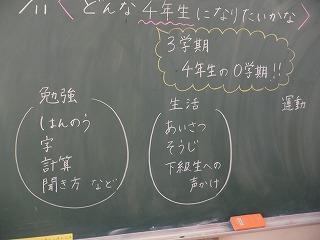 どんな4年生になりたいかな
3学期
4年生の0学期!!
勉強
はんのう
字
計算
聞き方 など
生活
あいさつ
そうじ
下級生への
声かけ
運動